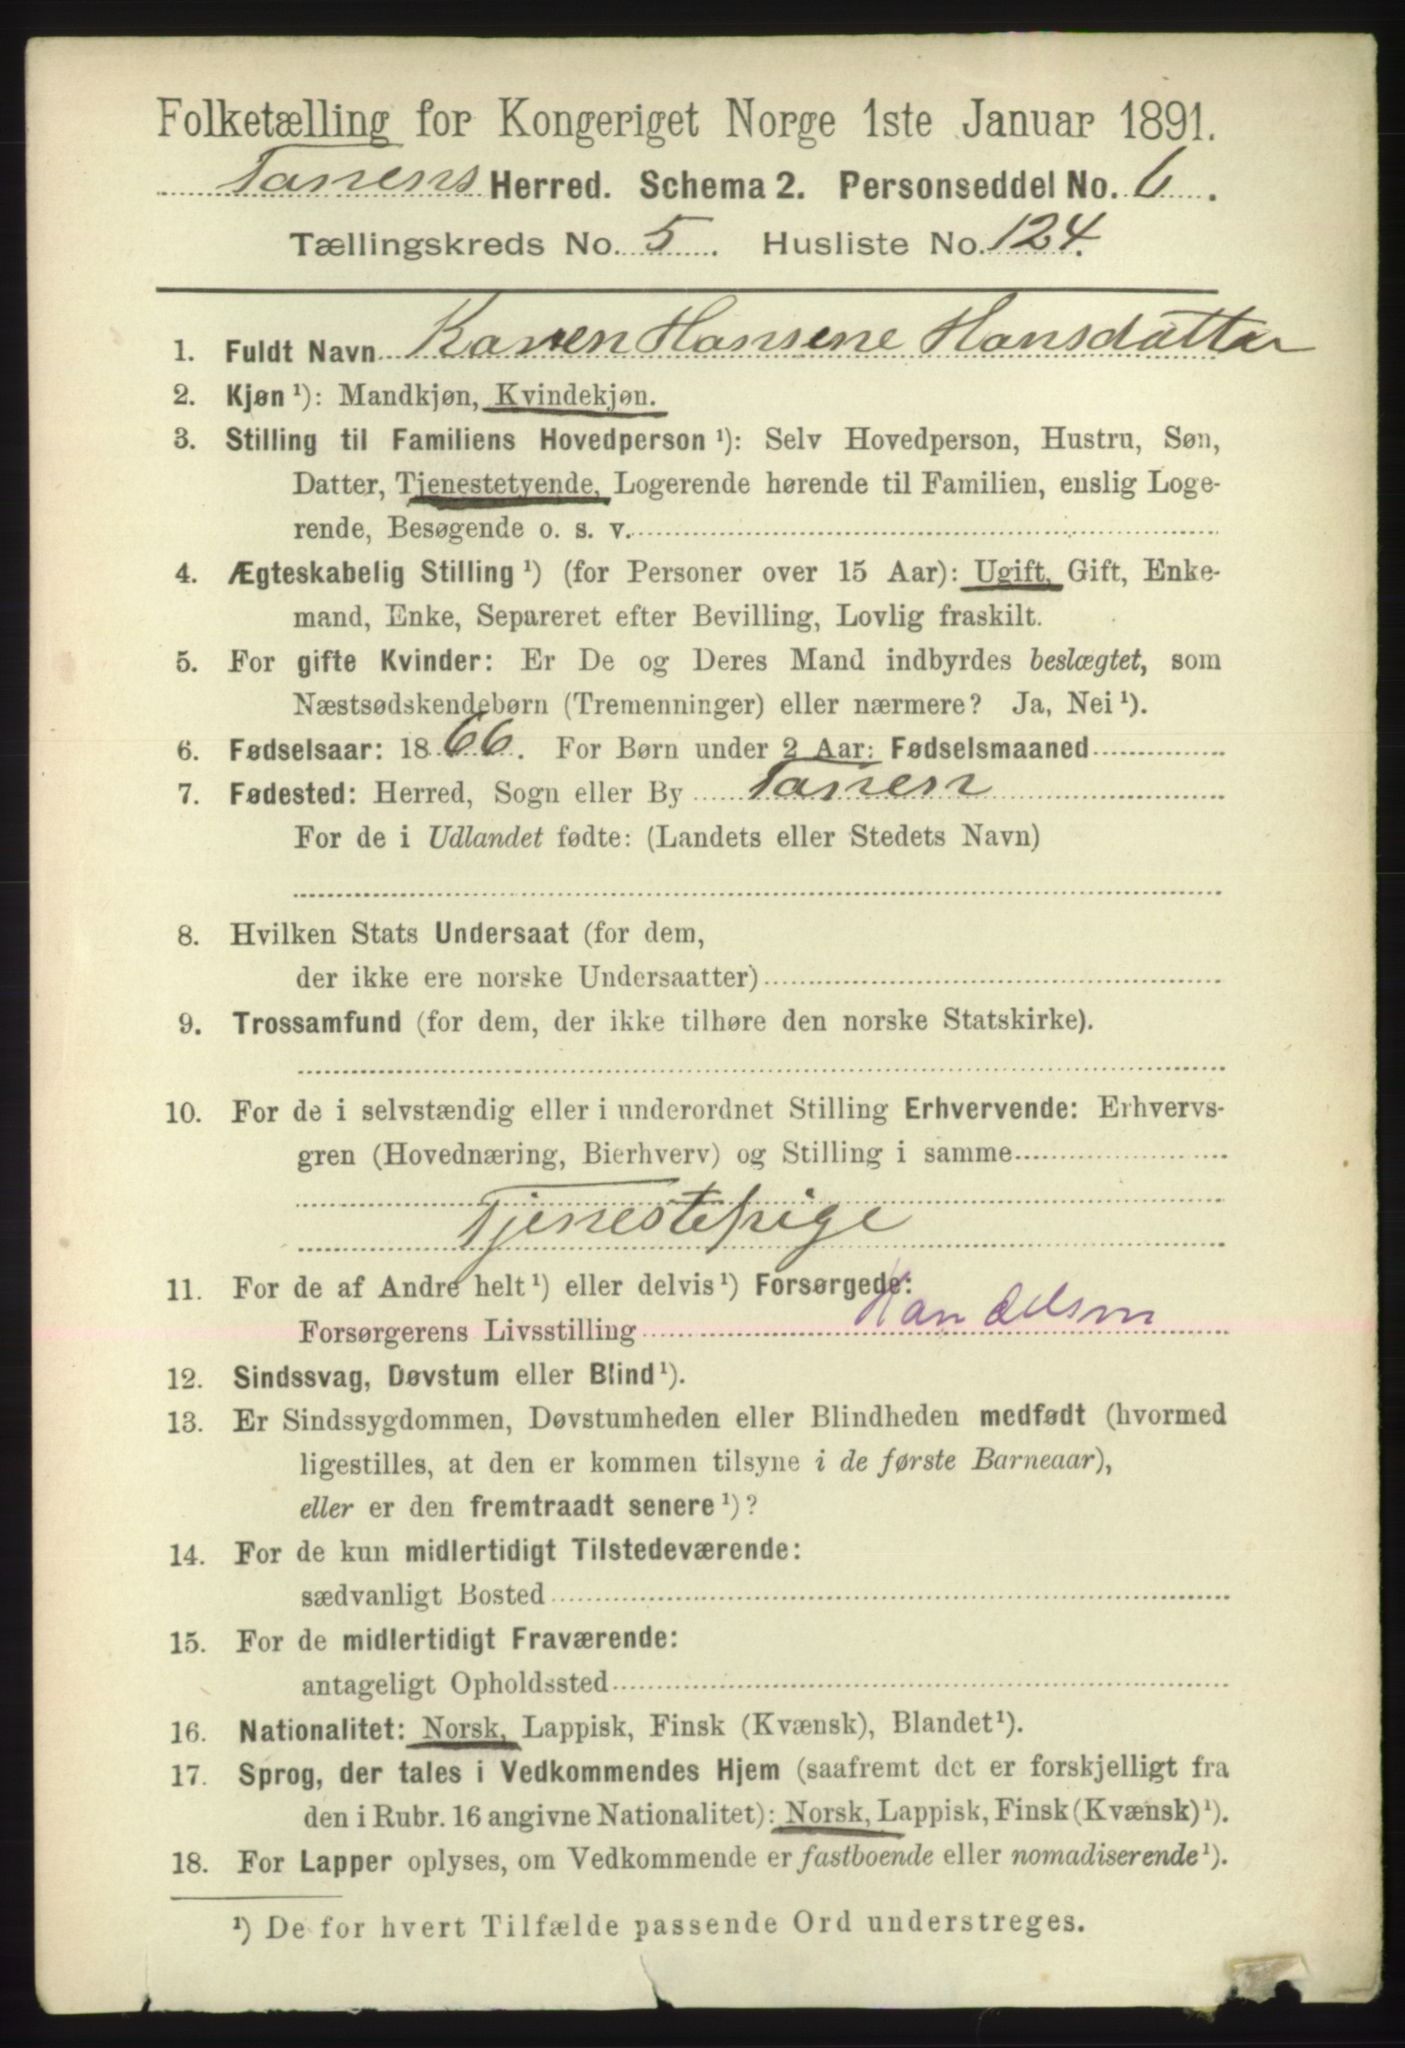 Folketælling for Kongeriget Norge 1ste Januar 1891.
Tanens Herred. Schema 2. Personseddel No. 6.
Tællingskreds No. 5. Husliste No. 124.
1. Fuldt Navn Karen Hansene Hansdatter
2. Kjøn ¹): Mandkjøn, Kvindekjøn.
3. Stilling til Familiens Hovedperson ¹): Selv Hovedperson, Hustru, Søn,
Datter, Tjenestetyende, Logerende hørende til Familien, enslig Loge-
rende, Besøgende o. s. v.
4. Ægteskabelig Stilling ¹) (for Personer over 15 Aar): Ugift, Gift, Enke-
mand, Enke, Separeret efter Bevilling, Lovlig fraskilt.
5. For gifte Kvinder: Er De og Deres Mand indbyrdes beslægtet, som
Næstsødskendebørn (Tremenninger) eller nærmere? Ja, Nei ¹).
6. Fødselsaar: 1866. For Børn under 2 Aar: Fødselsmaaned
7. Fødested: Herred, Sogn eller By Tanen
For de i Udlandet fødte: (Landets eller Stedets Navn)
8. Hvilken Stats Undersaat (for dem,
der ikke ere norske Undersaatter)
9. Trossamfund (for dem, der ikke tilhøre den norske Statskirke).
10. For de i selvstændig eller i underordnet Stilling Erhvervende: Erhvervs-
gren (Hovednæring, Bierhverv) og Stilling i samme
Tjenestepige
11. For de af Andre helt ¹) eller delvis ¹) Forsørgede:
Forsørgerens Livsstilling Handelsm
12. Sindssvag, Døvstum eller Blind ¹).
13. Er Sindssygdommen, Døvstumheden eller Blindheden medfødt (hvormed
ligestilles, at den er kommen tilsyne i de første Barneaar),
eller er den fremtraadt senere ¹)?
14. For de kun midlertidigt Tilstedeværende:
sædvanligt Bosted
15. For de midlertidigt Fraværende:
antageligt Opholdssted
16. Nationalitet: Norsk, Lappisk, Finsk (Kvænsk), Blandet ¹).
17. Sprog, der tales i Vedkommendes Hjem (saafremt det er forskjelligt fra
den i Rubr. 16 angivne Nationalitet): Norsk, Lappisk, Finsk (Kvænsk) ¹).
18. For Lapper oplyses, om Vedkommende er fastboende eller nomadiserende ¹).
¹) De for hvert Tilfælde passende Ord understreges.